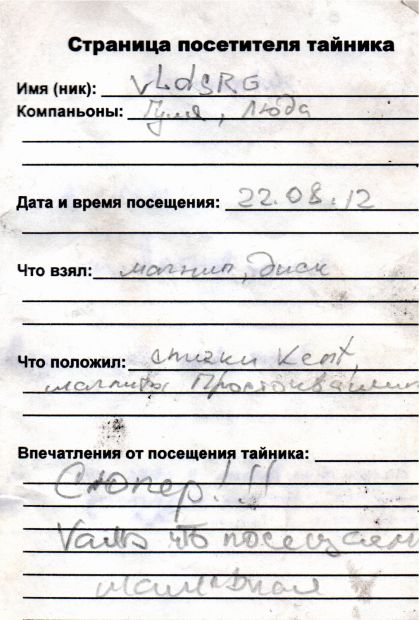 Страница посетителя тайника
Имя (ник): vLdSRG
Компаньоны: Гуля, Люда
Дата и время посещения: 22.08.12
Что взял: магнит, диск
Что положил: спички Kent,
магниты Простоквашино
Впечатления от посещения тайника:
Сюпер!!!
что посещаем